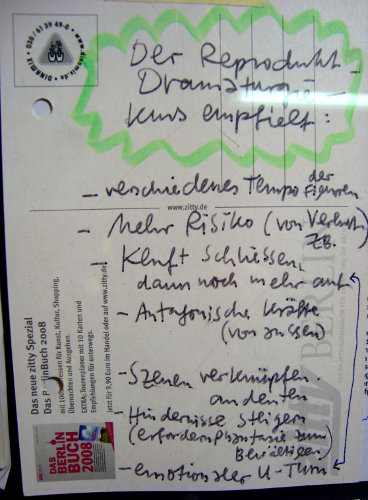 Der Reprodukt-
Dramaturgie-
kurs empfielt:
- verschiedenes Tempo der
Figuren
www.zitty.de
- Mehr Risiko (von Verlust)
zB.
- Kluft schliessen,
dann noch mehr auf
- Antagonische Kräfte
(von aussen)
- Szenen verknüpfen
andeuten
- Hindernisse steigern
(erfordern Phantasie zum
Bewältigen)
- emotionaler U-Turn
030 / 61 39 49-0 • www.dinamix.de • DINAMIX
Das neue zitty Spezial
Das BerlinBuch 2008
Überraschen und Ausgehen.
EXTRA: Tourenplaner mit 10 Karten und
Empfehlungen für unterwegs.
Jetzt für 9,90 Euro im Handel oder auf www.zitty.de
DAS
BERLIN
BUCH
2008
BERLIN